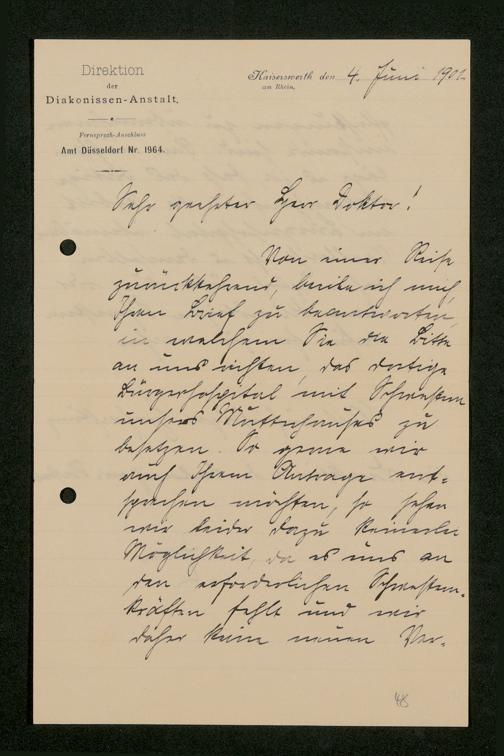 Direktion
der
Diakonissen-Anstalt.
Fernsprech-Anschluss
Amt Düsseldorf Nr. 1964.
Kaiserswerth den 4. Juni 1902
am Rhein.
Sehr geehrter Herr Doktor!
Von einer Reise
zurückkehrend, beeile ich mich,
Ihren Brief zu beantworten,
in welchem Sie die Bitte
an uns richten, das dortige
Bürgerhospital mit Schwestern
unseres Mutterhauses zu
besetzen. So gerne wir
auch Ihrem Antrage ent-
sprechen möchten, so sehen
wir leider dazu keinerlei
Möglichkeit, da es uns an
den erforderlichen Schwestern-
kräften fehlt und wir
daher keine neuen Ver-
48